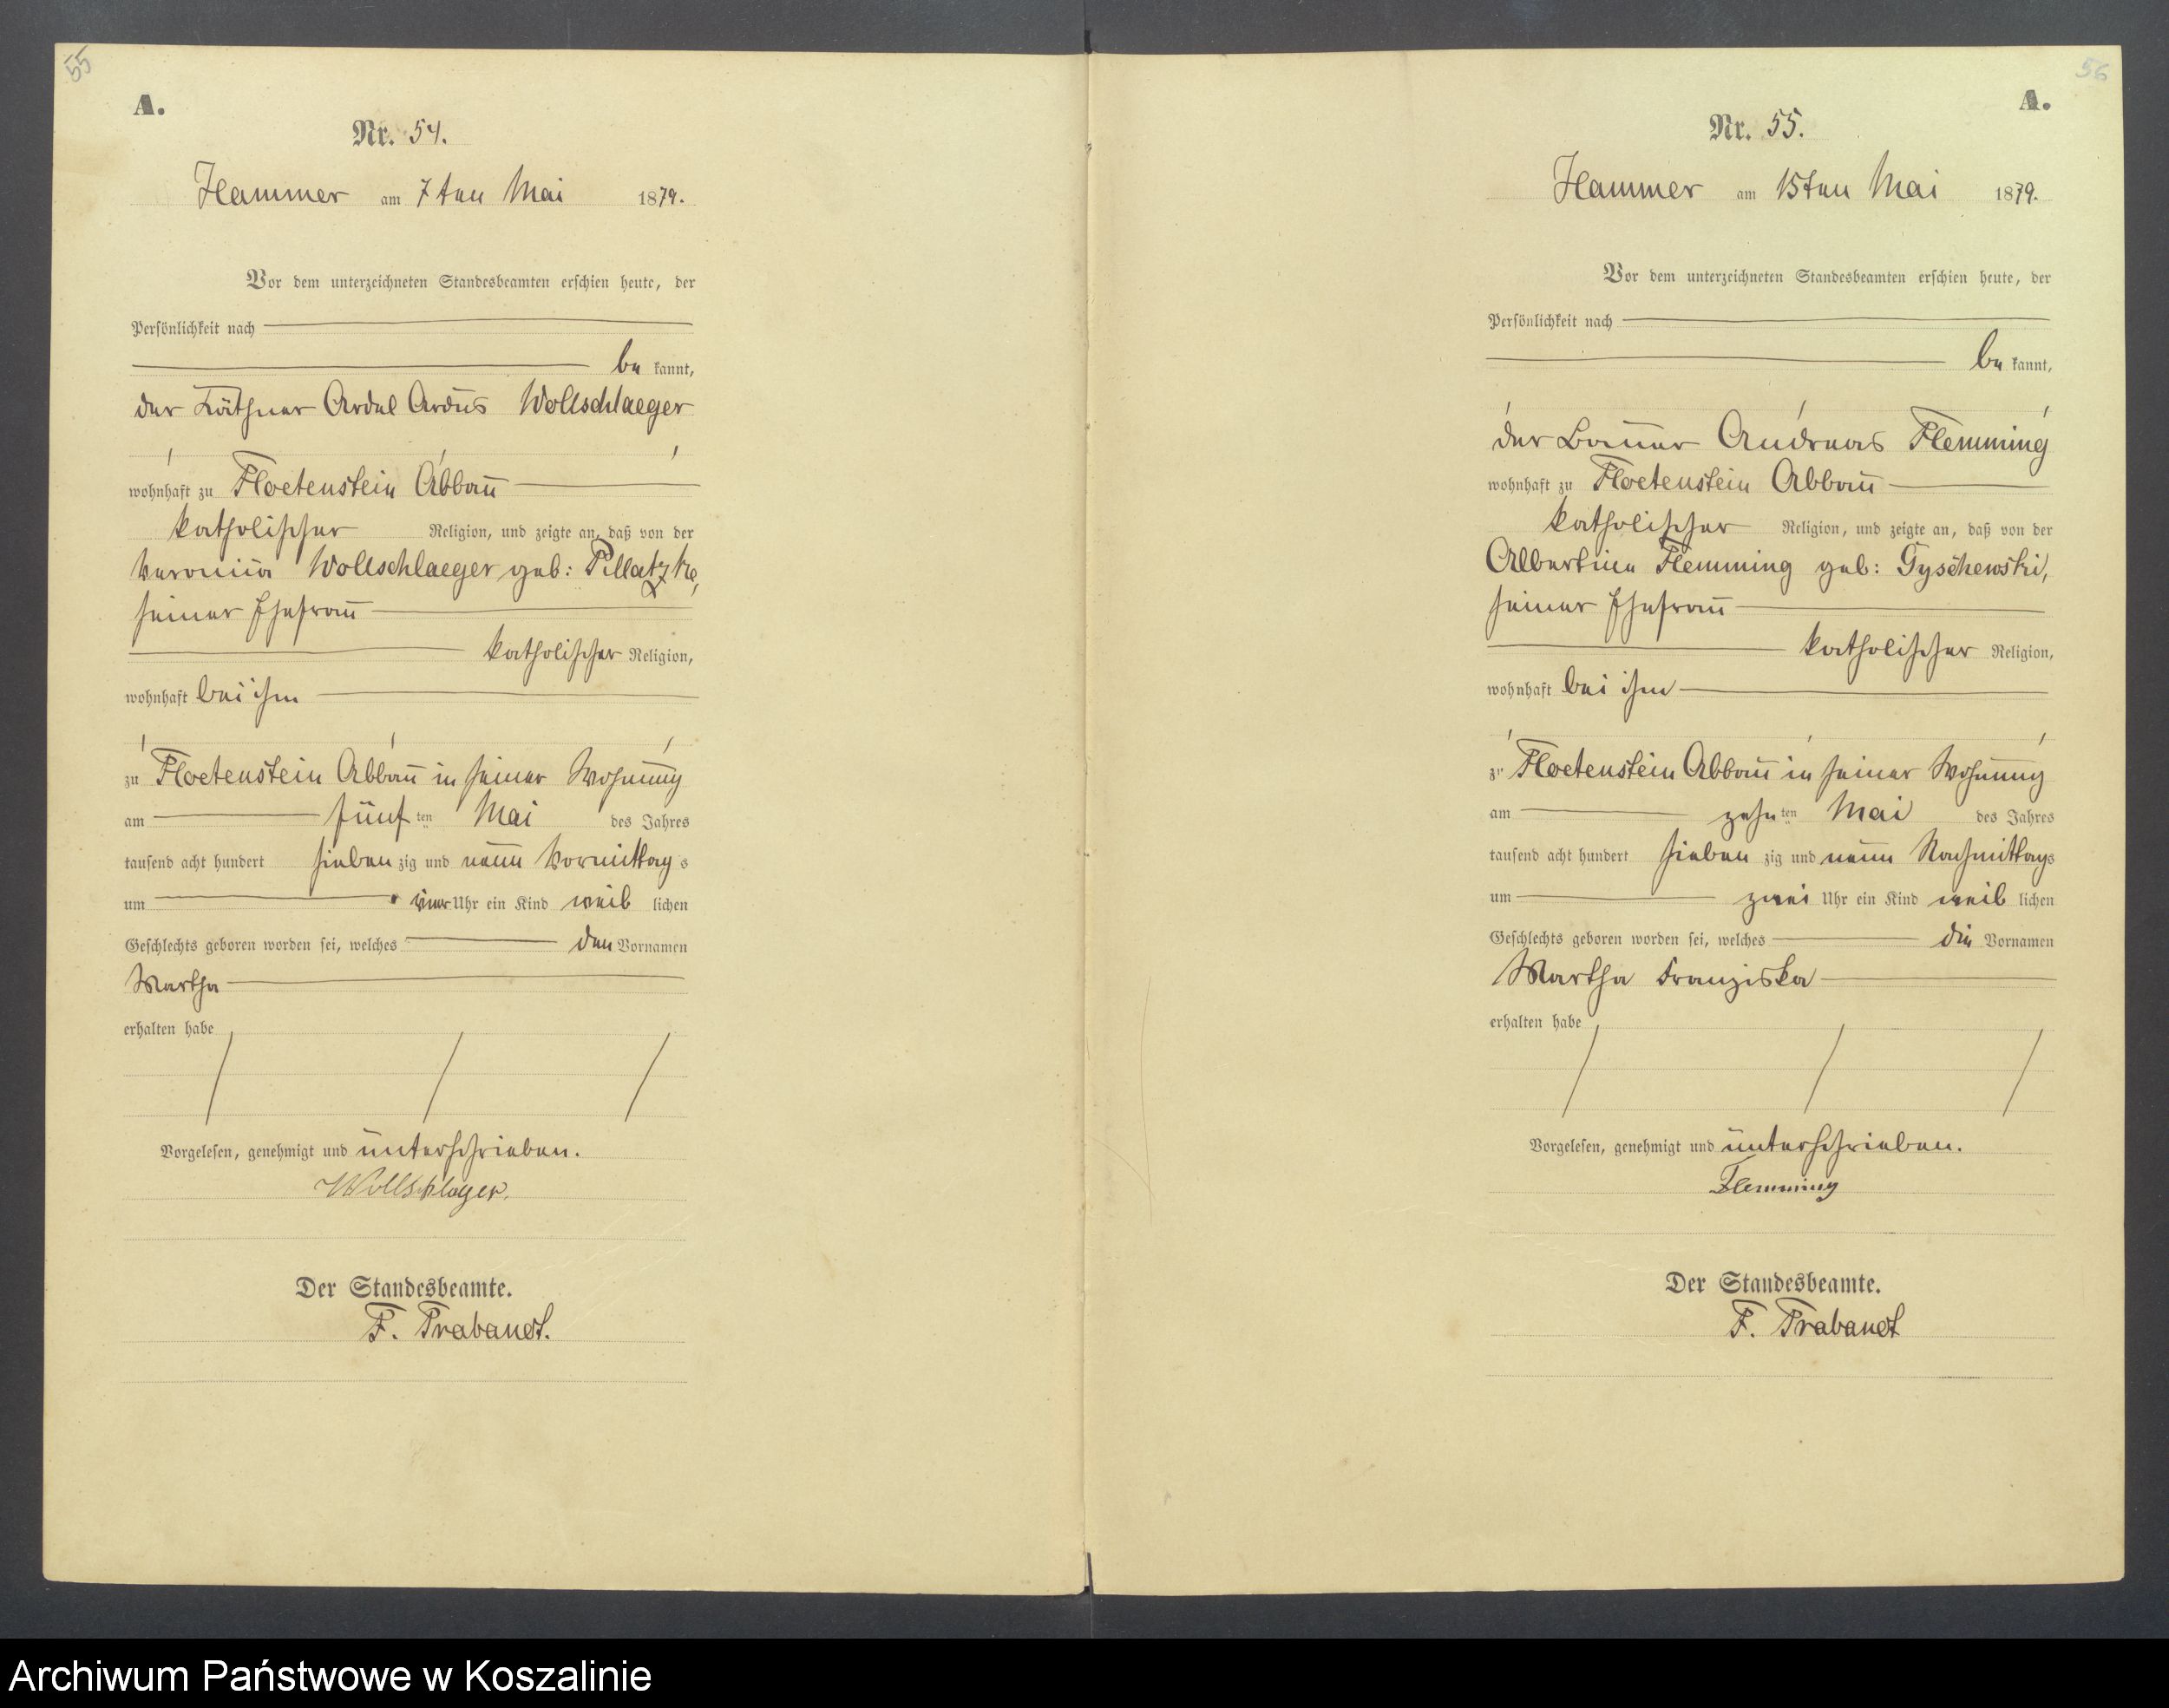 55
A.
Nr. 54.
Hammer am 7ten Mai 1879.
Vor dem unterzeichneten Standesbeamten erschien heute, der
Persönlichkeit nach
bekannt,
der Käthner Wollschlaeger
wohnhaft zu Floetenstein Abbau
katholischer Religion, und zeigte an, daß von der
Wollschlaeger geb: Pillatzke,
seiner Ehefrau
katholischer Religion,
wohnhaft bei ihm
zu Floetenstein Abbau in seiner Wohnung
am fünften Mai des Jahres
tausend acht hundert siebenzig und neun Vormittags
um Uhr ein Kind weiblichen
Geschlechts geboren worden sei, welches den Vornamen
Martha
erhalten habe
Vorgelesen, genehmigt und unterschrieben.
Wollschlager.
Der Standesbeamte.
F. Trabandt.
56
A.
Nr. 55.
Hammer am 15ten Mai 1879.
Vor dem unterzeichneten Standesbeamten erschien heute, der
Persönlichkeit nach
bekannt,
der Bauer Andreas Flemming
wohnhaft zu Floetenstein Abbau
katholischer Religion, und zeigte an, daß von der
Albertine Flemming geb: Gyschewski,
seiner Ehefrau
katholischer Religion,
wohnhaft bei ihm
zu Floetenstein Abbau in seiner Wohnung
am zehnten Mai des Jahres
tausend acht hundert siebenzig und neun Nachmittags
um zwei Uhr ein Kind weiblichen
Geschlechts geboren worden sei, welches die Vornamen
Martha Franziska
erhalten habe
Vorgelesen, genehmigt und unterschrieben.
Flemming
Der Standesbeamte.
F. Trabandt
Archiwum Państwowe w Koszalinie